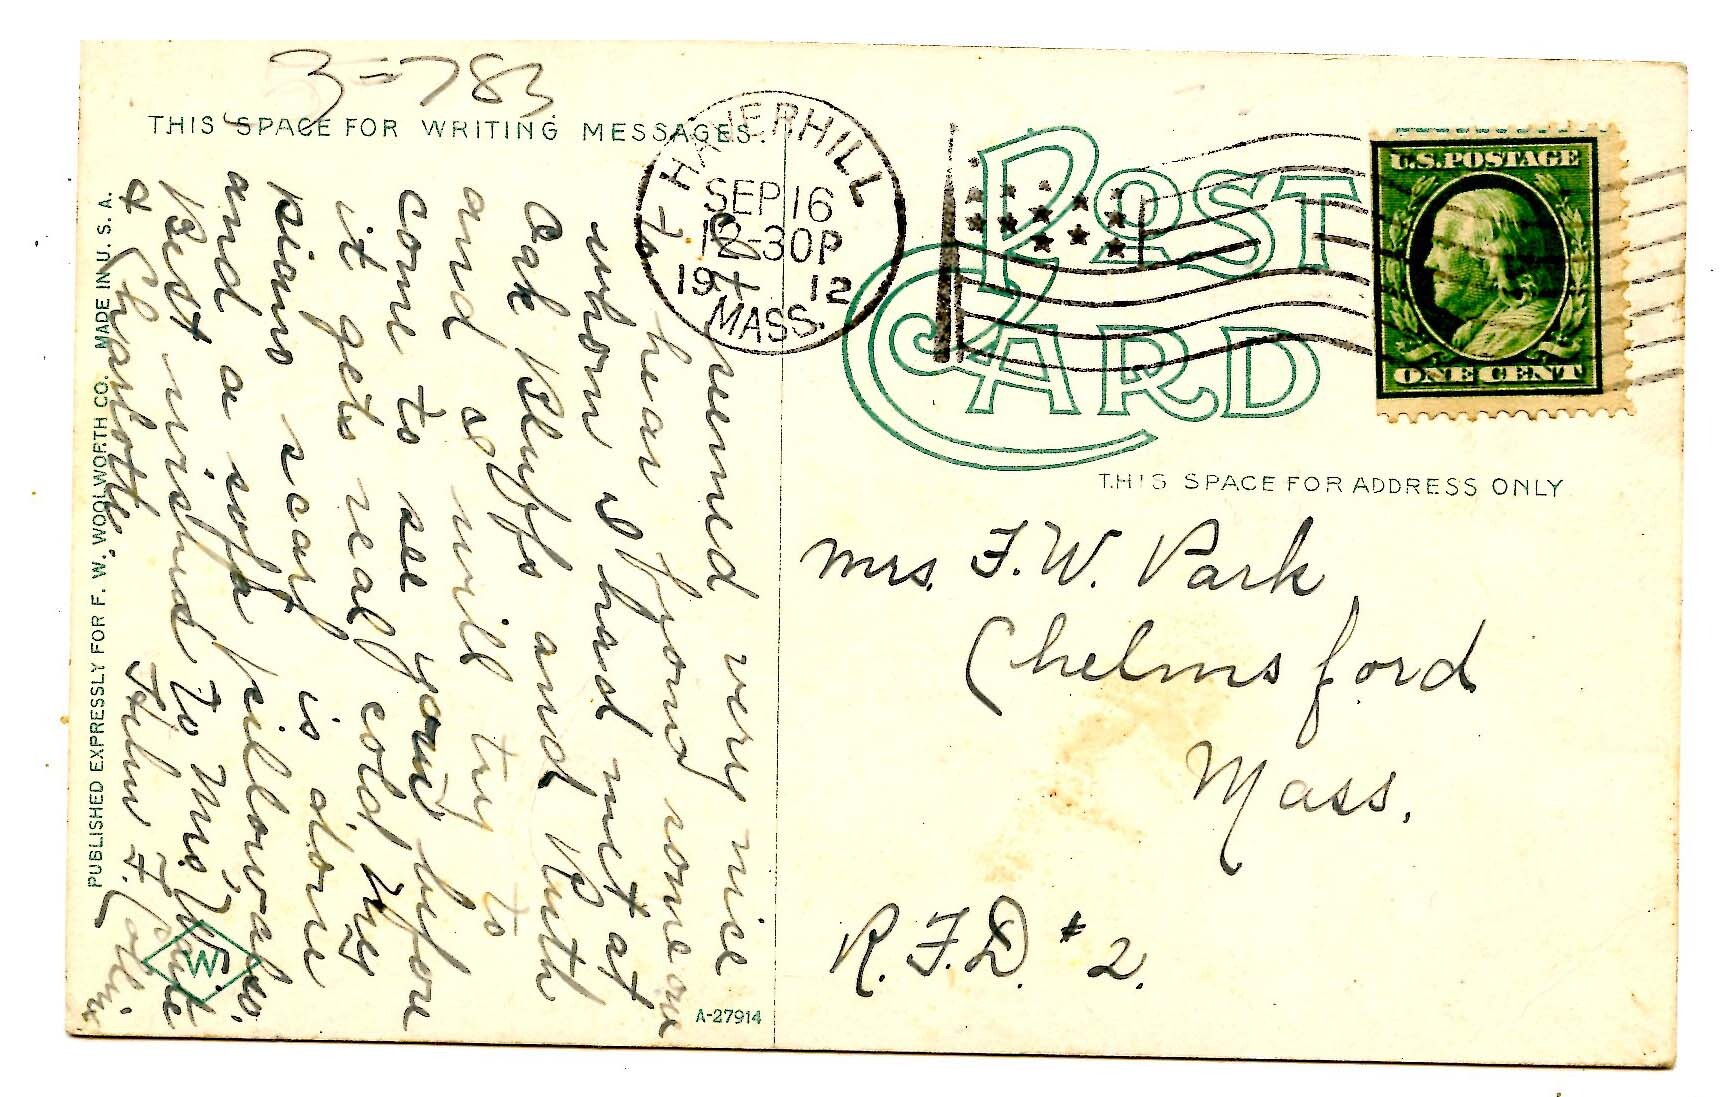 3=783
THIS SPACE FOR WRITING MESSAGES.
It seemed very nice
to hear from some one
whom I had met at
Oak Bluffs and Ruth
and I will try to
come to see you before
it gets real cold, my
piano scarf is done
and a sofa pillow also.
Best wishes to Mrs.
& Charlotte. Helen F. Collins
PUBLISHED EXPRESSLY FOR F. W. WOOLWORTH CO. MADE IN U. S. A.
W
A-27914
HAVERHILL
SEP 16
12-30P
19 12
MASS.
POST
CARD
U.S. POSTAGE
ONE CENT
THIS SPACE FOR ADDRESS ONLY
Mrs. F. W. Park,
Chelmsford
Mass.
R. F. D. # 2.